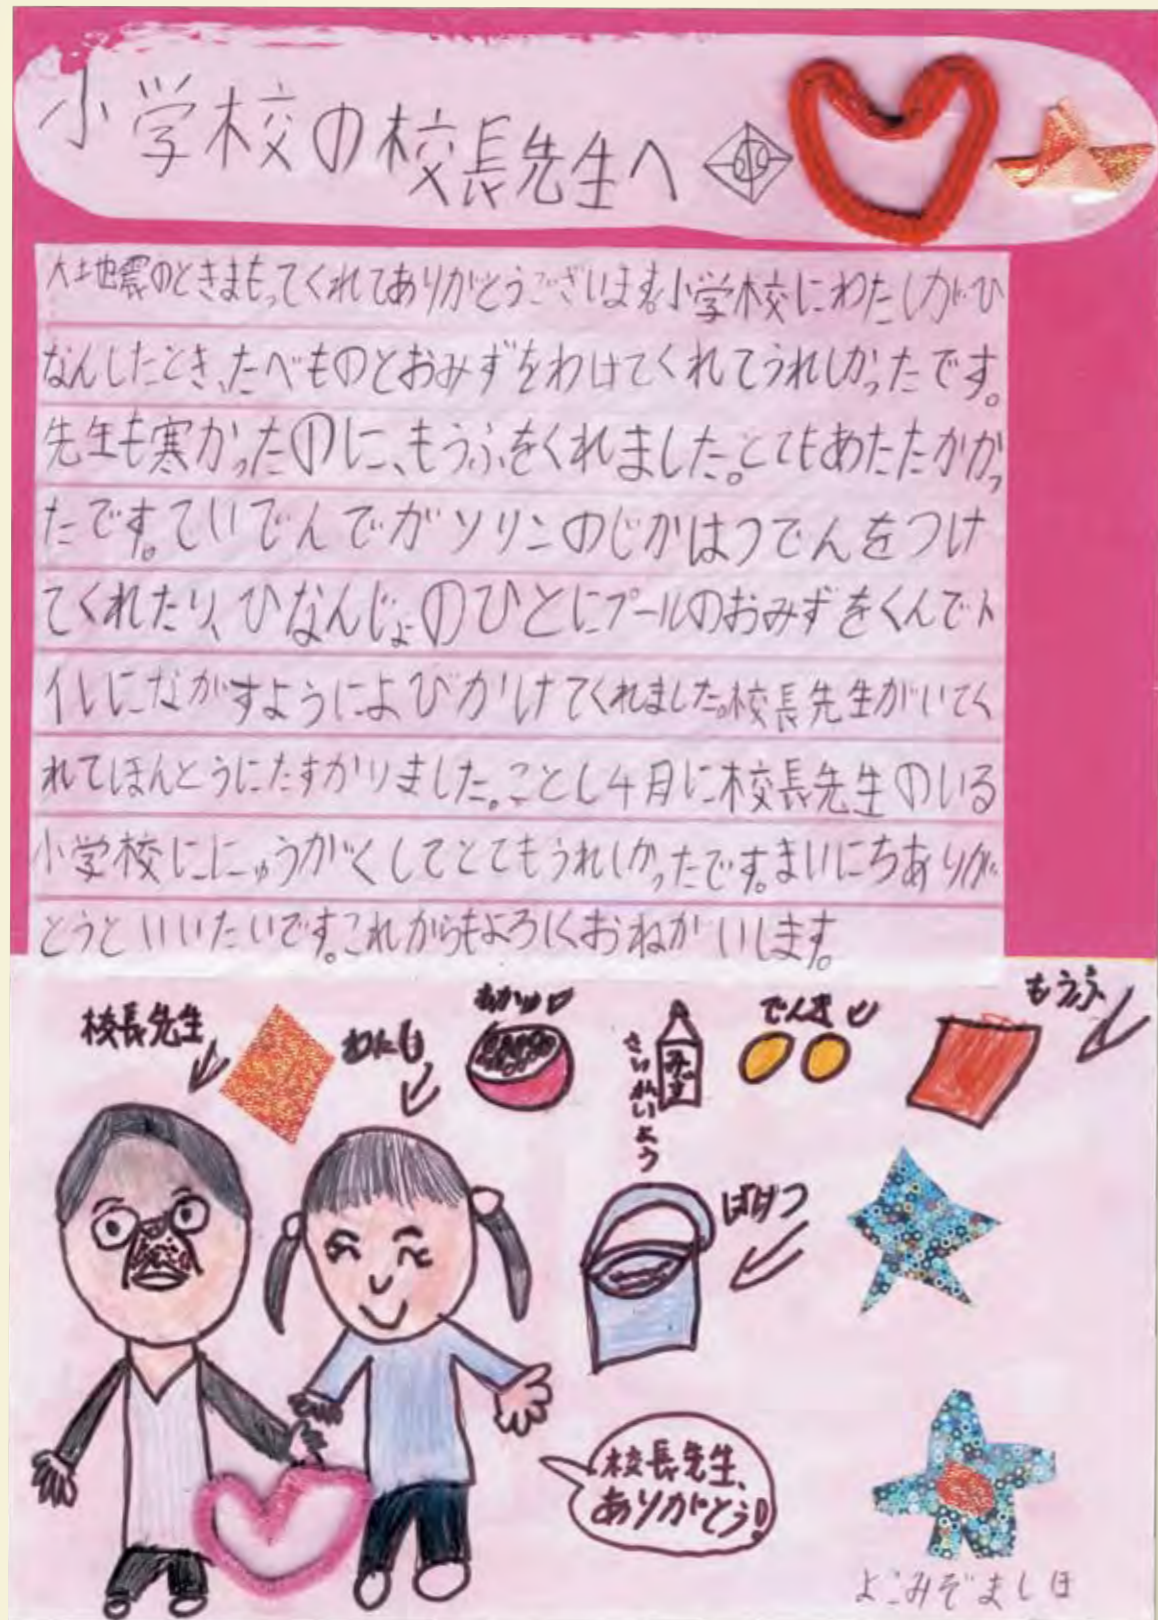 小学校の校長先生へ
大地震のときまもってくれてありがとうございます。小学校にわたしがひ
なんしたとき、たべものとおみずをわけてくれてうれしかったです。
先生も寒かったのに、もうふをくれました。とてもあたたかかっ
たです。ていでんでガソリンのじかはつでんをつけ
てくれたり、ひなんじょのひとにプールのおみずをくんでト
イレにながすようによびかけてくれました。校長先生がいてく
れてほんとうにたすかりました。ことし4月に校長先生のいる
小学校ににゅうがくしてとてもうれしかったです。まいにちありが
とうといいたいです。これからもよろしくおねがいします。
校長先生
わたし
おかゆ
さいがいよう
みず
でんき
もうふ
ばけつ
校長先生、
ありがとう!
よこみぞましほ